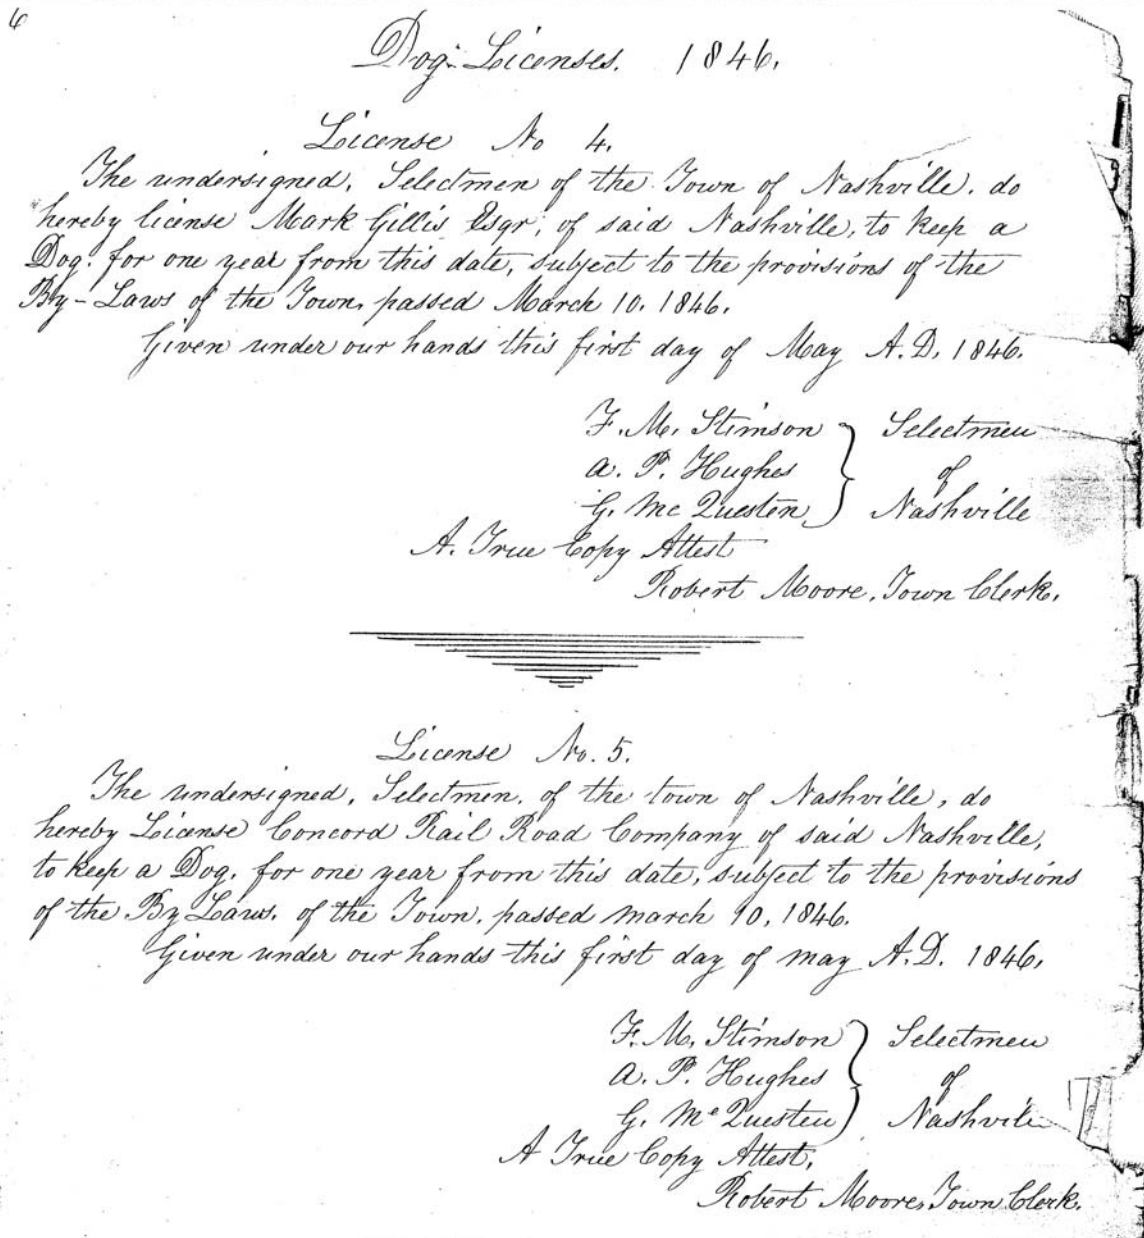 6
Dog Licenses. 1846.
License No 4.
The undersigned, Selectmen of the Town of Nashville, do
hereby license Mark Gillis Esqr, of said Nashville, to keep a
Dog, for one year from this date, subject to the provisions of the
By-Laws of the Town, passed March 10. 1846.
Given under our hands this first day of May A.D. 1846.
F. M. Stimson } Selectmen
A. P. Hughes } of
G. Mc Questen } Nashville
A. True Copy Attest
Robert Moore, Town Clerk.
License No. 5.
The undersigned, Selectmen, of the town of Nashville, do
hereby License Concord Rail Road Company of said Nashville,
to keep a Dog, for one year from this date, subject to the provisions
of the By Laws, of the Town, passed march 10, 1846.
Given under our hands this first day of may A.D. 1846,
F. M. Stimson } Selectmen
A. P. Hughes } of
G. Mc Questen } Nashville
A True Copy Attest,
Robert Moore, Town Clerk.